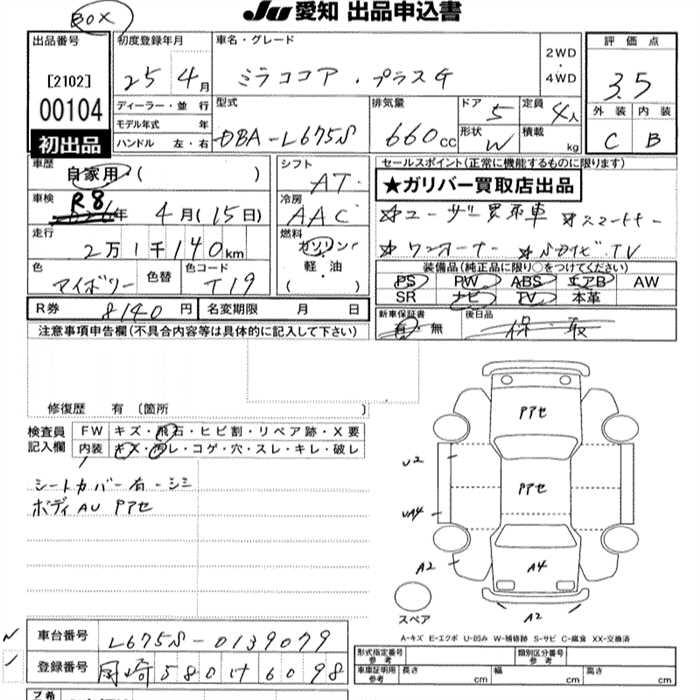 BOX
Ju 愛知 出品申込書
出品番号
[2102]
00104
初出品
初度登録年月
25 4月
ディーラー・並行
モデル年式 年
ハンドル 左・右
車名・グレード
ミラココア・プラスG
2WD
・
4WD
型式
DBA-L675S
排気量
660cc
ドア 5
形状 W
定員 4人
積載 kg
評価点
3.5
外装 内装
C B
車歴
自家用 ( )
車検
R8年 4月(15日)
走行
2万1千140km
色
アイボリー
色替
色コード
T19
シフト
AT
冷房
AAC
燃料
ガソリン
軽油
( )
セールスポイント(正常に機能するものに限ります)
★ガリバー買取店出品
☆ユーザー買取車
☆ワンオーナー
装備品(純正品に限り○をつけてください)
PS PW ABS エアB AW
SR ナビ TV 本革
新車保証書
有・無
後日品
保・取
R券 8140円
名変期限 月 日
注意事項申告欄(不具合内容等は具体的に記入して下さい)
修復歴 有 (箇所 )
検査員
記入欄
FW キズ・飛石・ヒビ割・リペア跡・X要
内装 キズ・汚レ・コゲ・穴・スレ・キレ・破レ
シートカバー有・シミ
ボディAU Pアセ
Pアセ
U2
Pアセ
UA4
A2
A4
A2
スペア
A-キズ E-エクボ U-凹み W-補修跡 S-サビ C-腐食 XX-交換済
車台番号 L675S-0139079
登録番号 岡崎580け6098
形式指定番号
参考
類別区分番号
参考
車庫証明用
参考
長さ cm
幅 cm
高さ cm